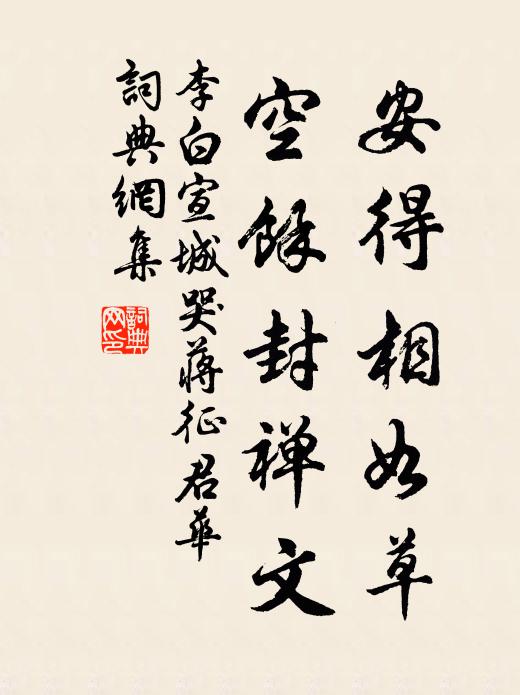 安得相如草
空餘封禪文
李白宣城哭蔣征君華
詞典網集
詞典网印